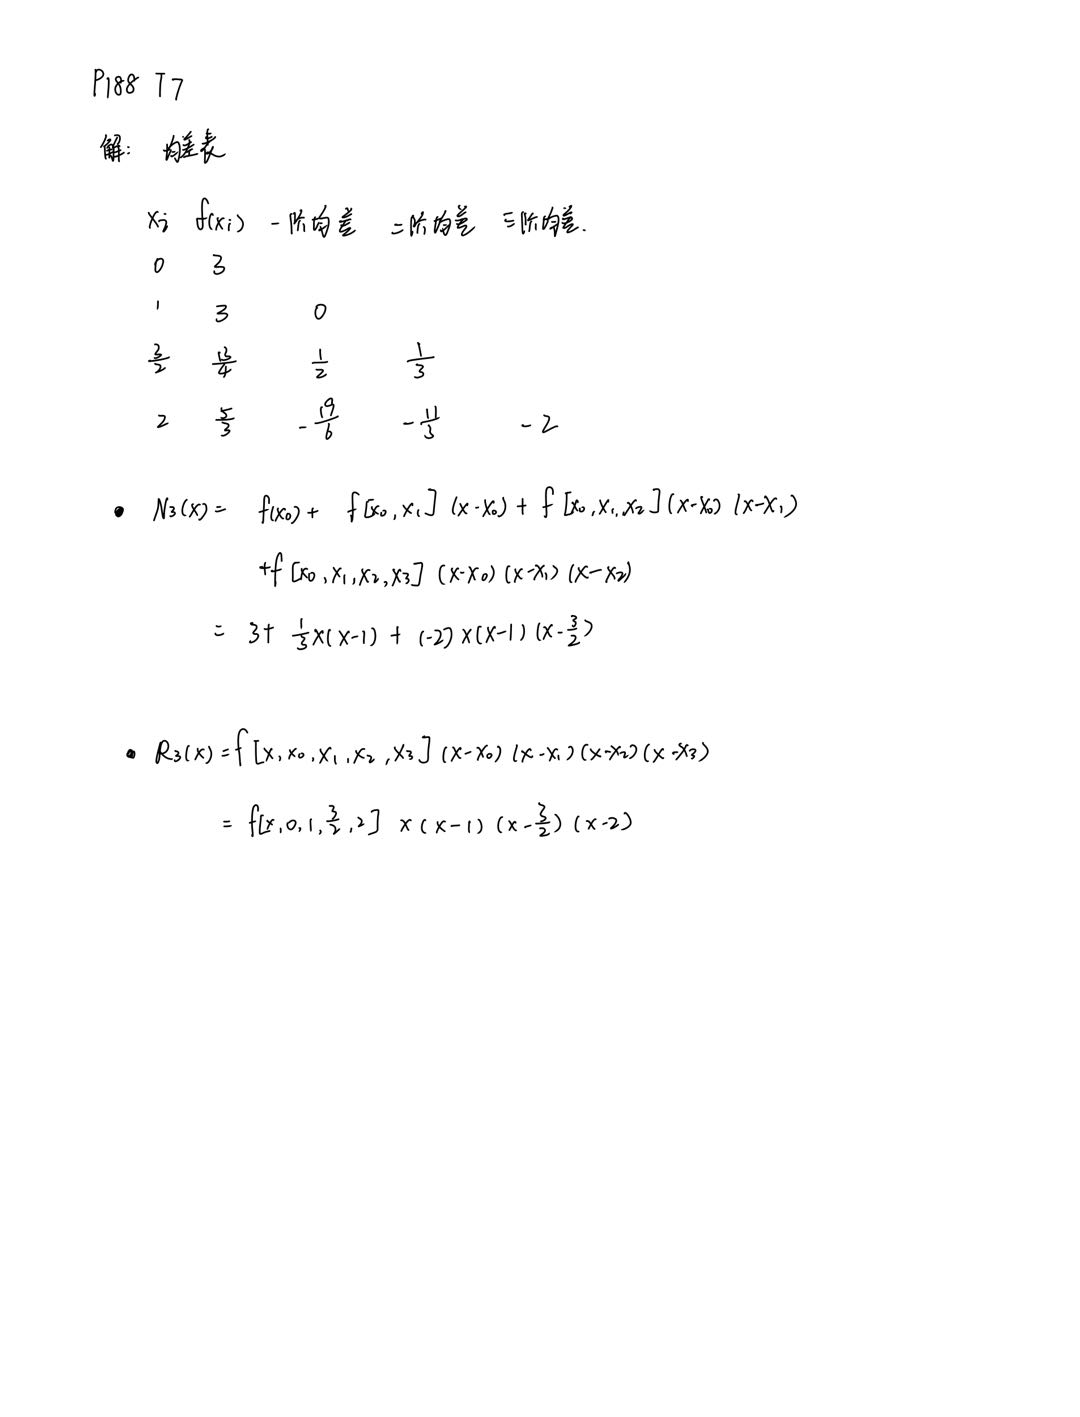 P188 T7
解: 均差表
xi f(xi) 一阶均差 二阶均差 三阶均差.
0 3
1 3 0
3/2 13/4 1/2 1/3
2 5/3 -19/6 -11/3 -2
• N3(x) = f(x0) + f[x0,x1](x-x0) + f[x0,x1,x2](x-x0)(x-x1)
+f[x0,x1,x2,x3](x-x0)(x-x1)(x-x2)
= 3+ 1/3x(x-1) + (-2)x(x-1)(x-3/2)
• R3(x) = f[x,x0,x1,x2,x3](x-x0)(x-x1)(x-x2)(x-x3)
= f[x,0,1,3/2,2] x(x-1)(x-3/2)(x-2)